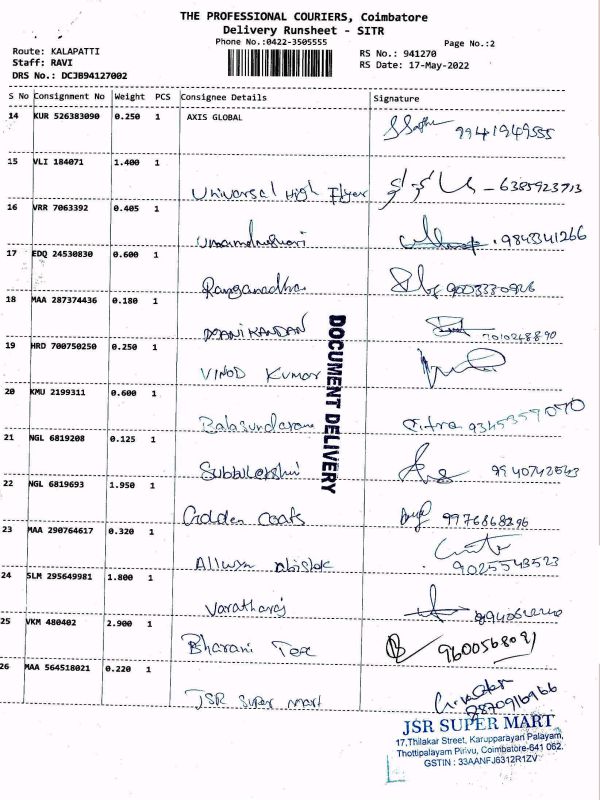 THE PROFESSIONAL COURIERS, Coimbatore
Delivery Runsheet - SITR
Phone No.:0422-3505555
Page No.:2
Route: KALAPATTI
Staff: RAVI
DRS No.: DCJB94127002
RS No.: 941270
RS Date: 17-May-2022
S No Consignment No Weight PCS Consignee Details Signature
14 KUR 526383090 0.250 1 AXIS GLOBAL 9941949555
15 VLI 184071 1.400 1
Universal High Flyer - 6385923713
16 VRR 7063392 0.405 1
Umamaheswari . 9843341266
17 EDQ 24530830 0.600 1
Ranganadha 9003330926
18 MAA 287374436 0.180 1
MANIKANDAN 7010248890
19 HRD 700750250 0.250 1
VINOD KUMAR
20 KMU 2199311 0.600 1
Balasundaram 9345359070
21 NGL 6819208 0.125 1
Subbulakshmi 9940742543
22 NGL 6819693 1.950 1
Golden Coats 9976868296
23 MAA 290764617 0.320 1
Allwyn abishek 9025543523
24 SLM 295649981 1.800 1
Varatharaj
25 VKM 480402 2.900 1
Bharani Tex 9600568091
26 MAA 564518021 0.220 1
JSR Super mart 9870916966
DOCUMENT DELIVERY
JSR SUPER MART
17,Thilakar Street, Karupparayan Palayam,
Thottipalayam Pirivu, Coimbatore-641 062.
GSTIN : 33AANFJ6312R1ZV